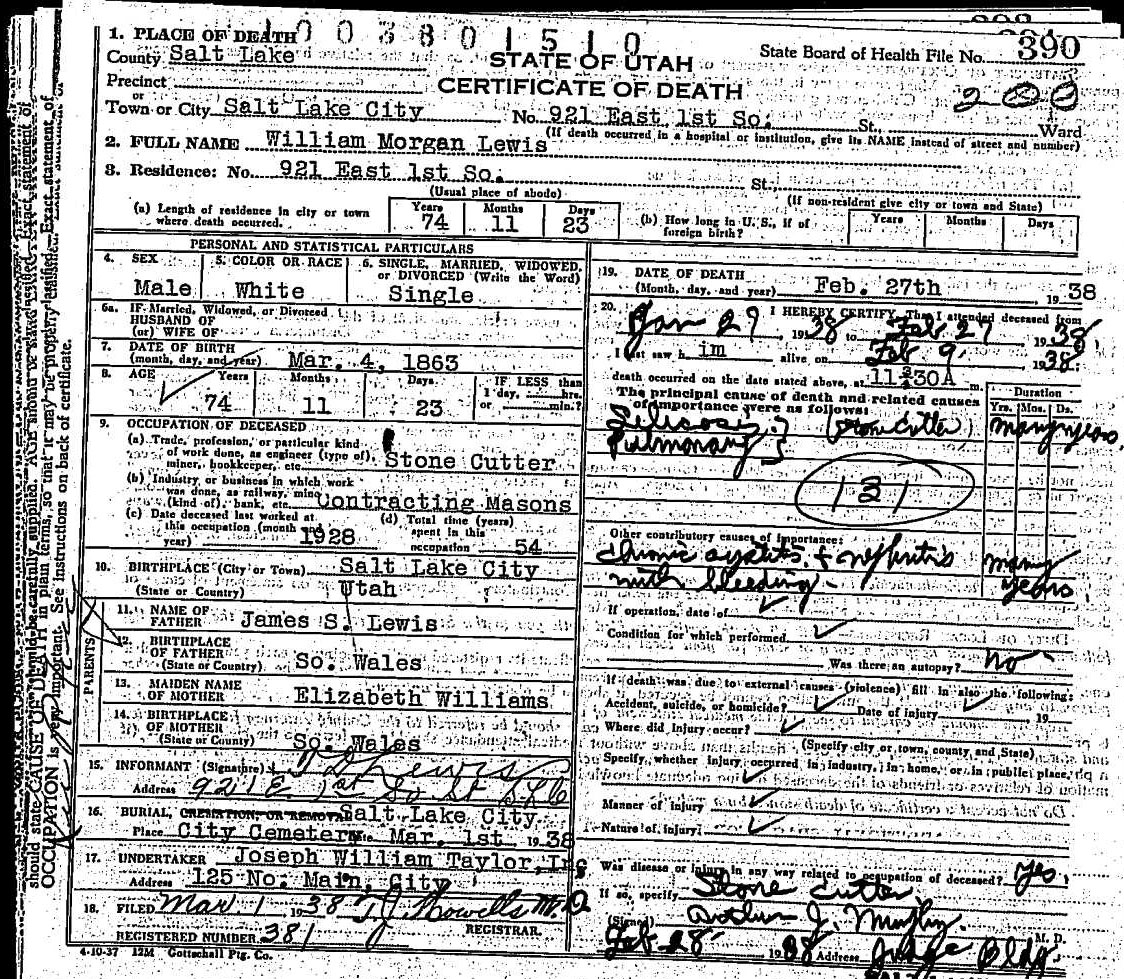 1. PLACE OF DEATH 1003801510
County Salt Lake
STATE OF UTAH
CERTIFICATE OF DEATH
State Board of Health File No. 390
200
Precinct
or
Town or City Salt Lake City No. 921 East 1st So. St., Ward
(If death occurred in a hospital or institution, give its NAME instead of street and number)
2. FULL NAME William Morgan Lewis
3. Residence: No. 921 East 1st So. St.,
(Usual place of abode)
(If non-resident give city or town and State)
(a) Length of residence in city or town where death occurred. Years 74 Months 11 Days 23
(b) How long in U. S., if of foreign birth? Years Months Days
PERSONAL AND STATISTICAL PARTICULARS
4. SEX Male
5. COLOR OR RACE White
6. SINGLE, MARRIED, WIDOWED, or DIVORCED (Write the Word) Single
6a. If Married, Widowed, or Divorced
HUSBAND OF
(or) WIFE OF
7. DATE OF BIRTH
(month, day, and year) Mar. 4, 1863
8. AGE Years 74 Months 11 Days 23
IF LESS than 1 day, hrs. or min.?
9. OCCUPATION OF DECEASED
(a) Trade, profession, or particular kind of work done, as engineer (type of), miner, bookkeeper, etc. Stone Cutter
(b) Industry or business in which work was done, as railway, mine (kind of), bank, etc. Contracting Masons
(c) Date deceased last worked at this occupation (month and year) 1928
(d) Total time (years) spent in this occupation 54
10. BIRTHPLACE (City or Town) Salt Lake City
(State or Country) Utah
PARENTS
11. NAME OF FATHER James S. Lewis
12. BIRTHPLACE OF FATHER
(State or Country) So. Wales
13. MAIDEN NAME OF MOTHER Elizabeth Williams
14. BIRTHPLACE OF MOTHER
(State or Country) So. Wales
15. INFORMANT (Signature) Lewis
Address 921 E. 1st So St SLC
16. BURIAL, CREMATION, OR REMOVAL Salt Lake City
Place City Cemetery Date Mar. 1st 1938
17. UNDERTAKER Joseph William Taylor, Inc
Address 125 No. Main, City
18. FILED Mar. 1 1938 T. J. Howells M. D.
REGISTRAR.
REGISTERED NUMBER 381
4-10-37 12M Gottschall Ptg. Co.
19. DATE OF DEATH
(Month, day, and year) Feb. 27th 1938
20. I HEREBY CERTIFY, That I attended deceased from
Jan 29, 1938 to Feb 27 1938
I last saw h im alive on Feb 9, 1938
death occurred on the date stated above, at 11:30A m.
The principal cause of death and related causes of importance were as follows:
Duration
Yrs. Mos. Ds.
Silicosis } (stone cutter) many years
Pulmonary }
131
Other contributory causes of importance:
Chronic cystitis & nephritis many
with bleeding years
If operation, date of
Condition for which performed
Was there an autopsy? no
If death was due to external causes (violence) fill in also the following:
Accident, suicide, or homicide? Date of injury 19
Where did injury occur?
(Specify city or town, county and State)
Specify, whether injury occurred in industry, in home, or in public place,
Manner of injury
Nature of injury
Was disease or injury in any way related to occupation of deceased? Yes
If so, specify Stone Cutter
(Signed) Arthur J. Murphy M. D.
Feb 28 1938 Address Judge Bldg.
should state CAUSE OF DEATH in plain terms, so that it may be properly classified. Exact statement of
OCCUPATION is very important. See instructions on back of certificate.